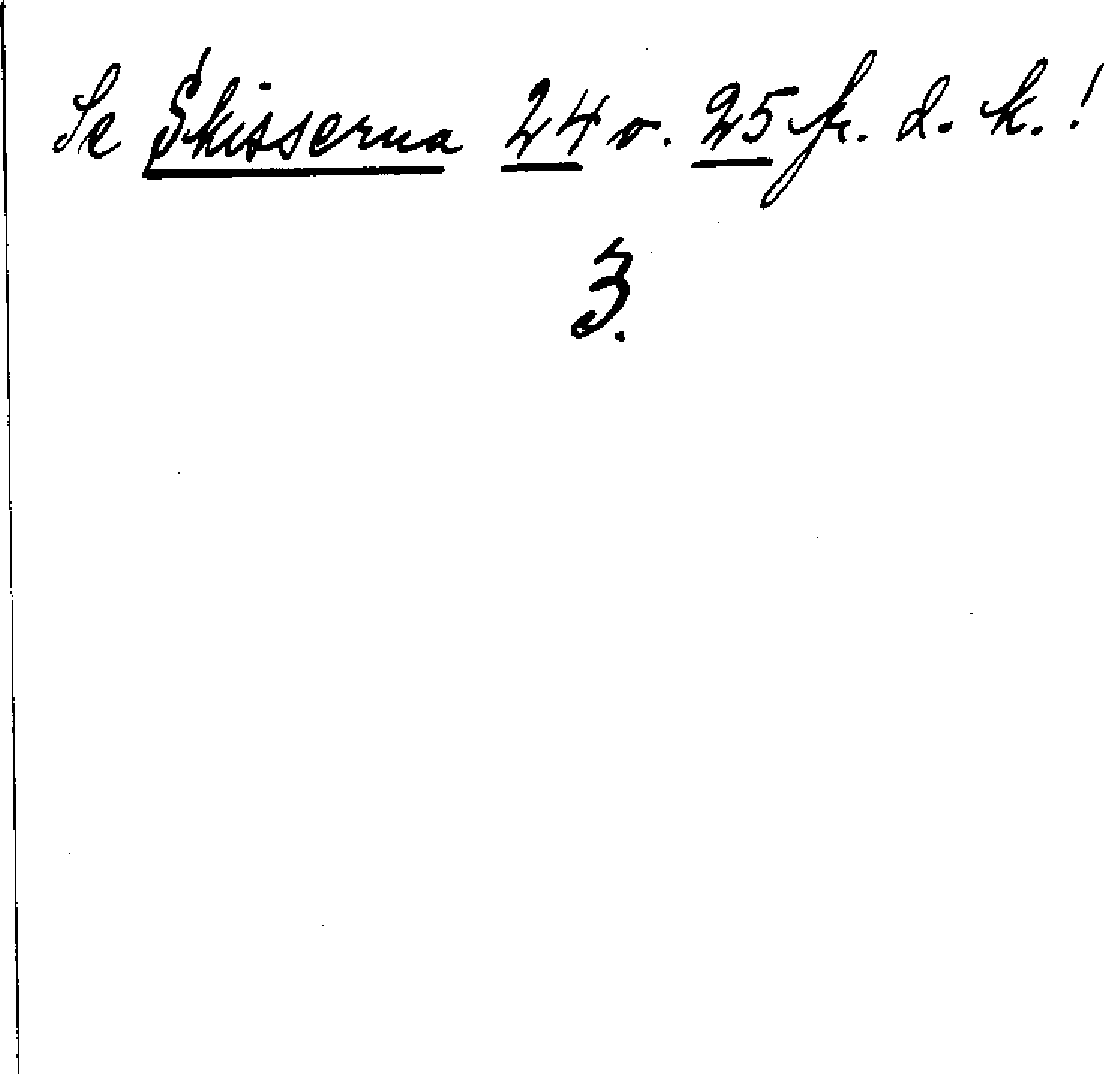 Se Skisserna 24 o. 25 fr. d. k.!
3.